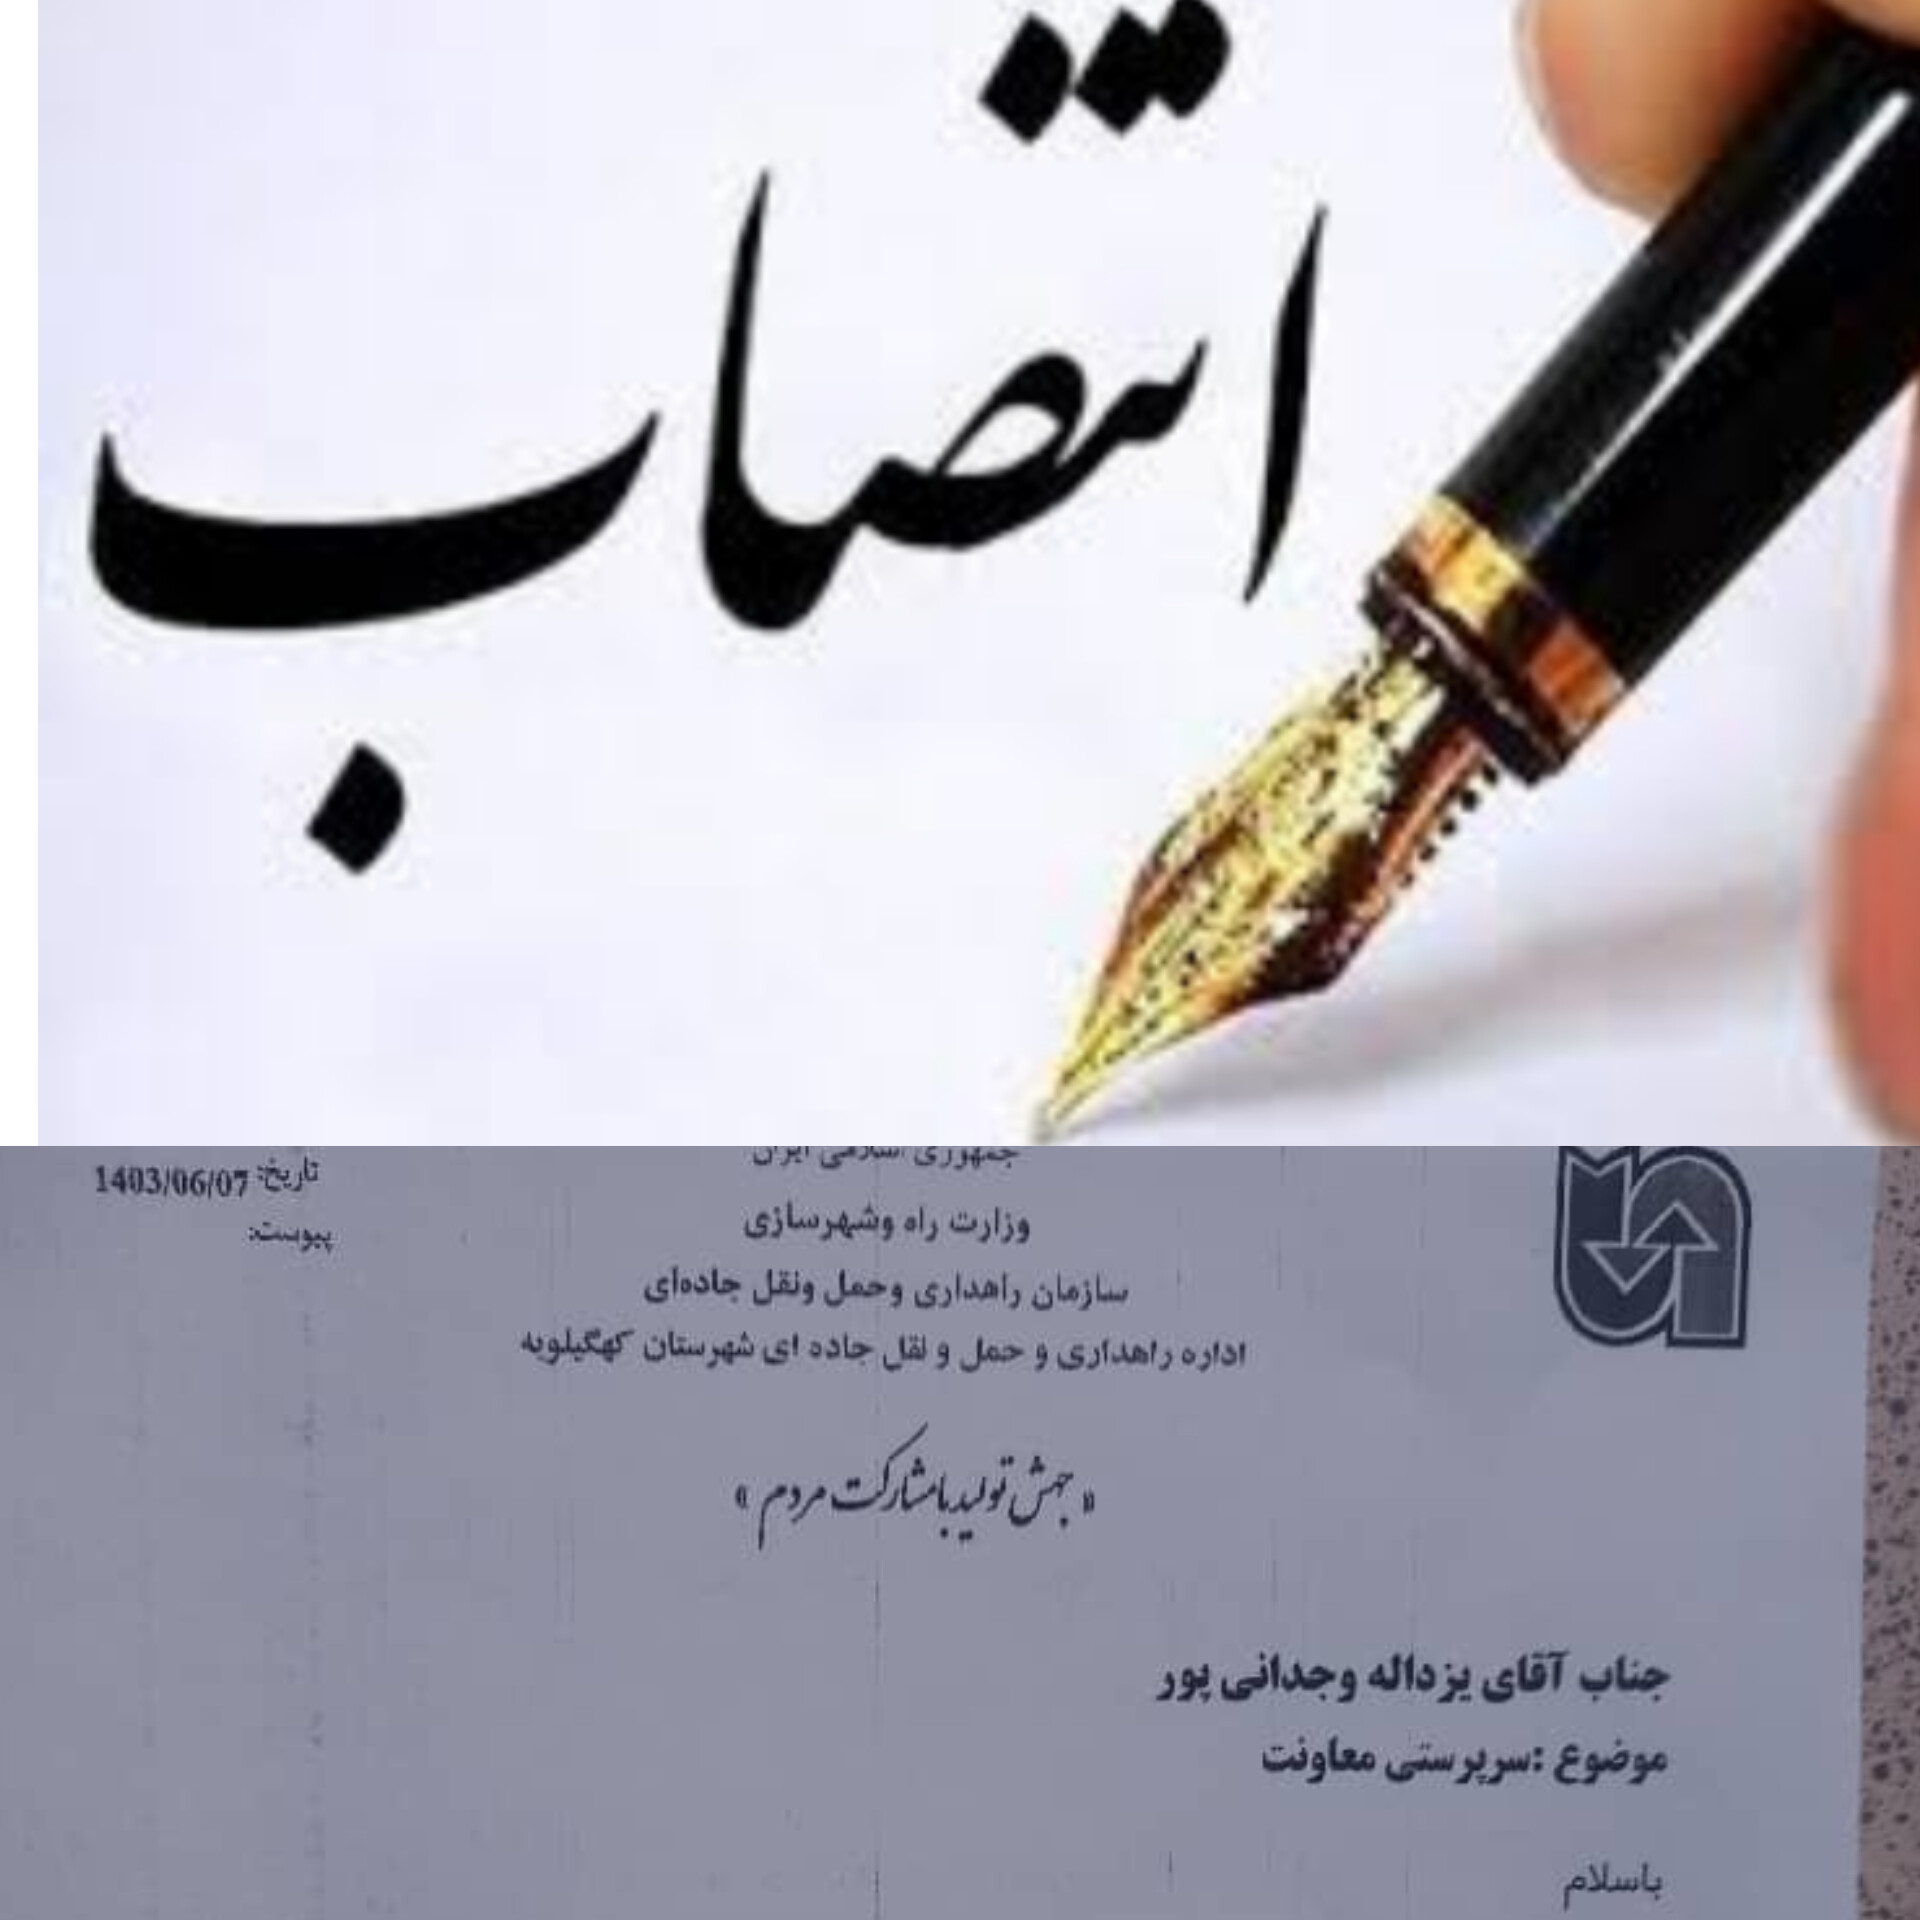 انتصاب
جمهوری اسلامی ایران
تاریخ: 1403/06/07
وزارت راه وشهرسازی
پیوست:
سازمان راهداری وحمل ونقل جاده‌ای
اداره راهداری و حمل و نقل جاده ای شهرستان کهگیلویه
« جهش تولید با مشارکت مردم »
جناب آقای یزداله وجدانی پور
موضوع :سرپرستی معاونت
باسلام